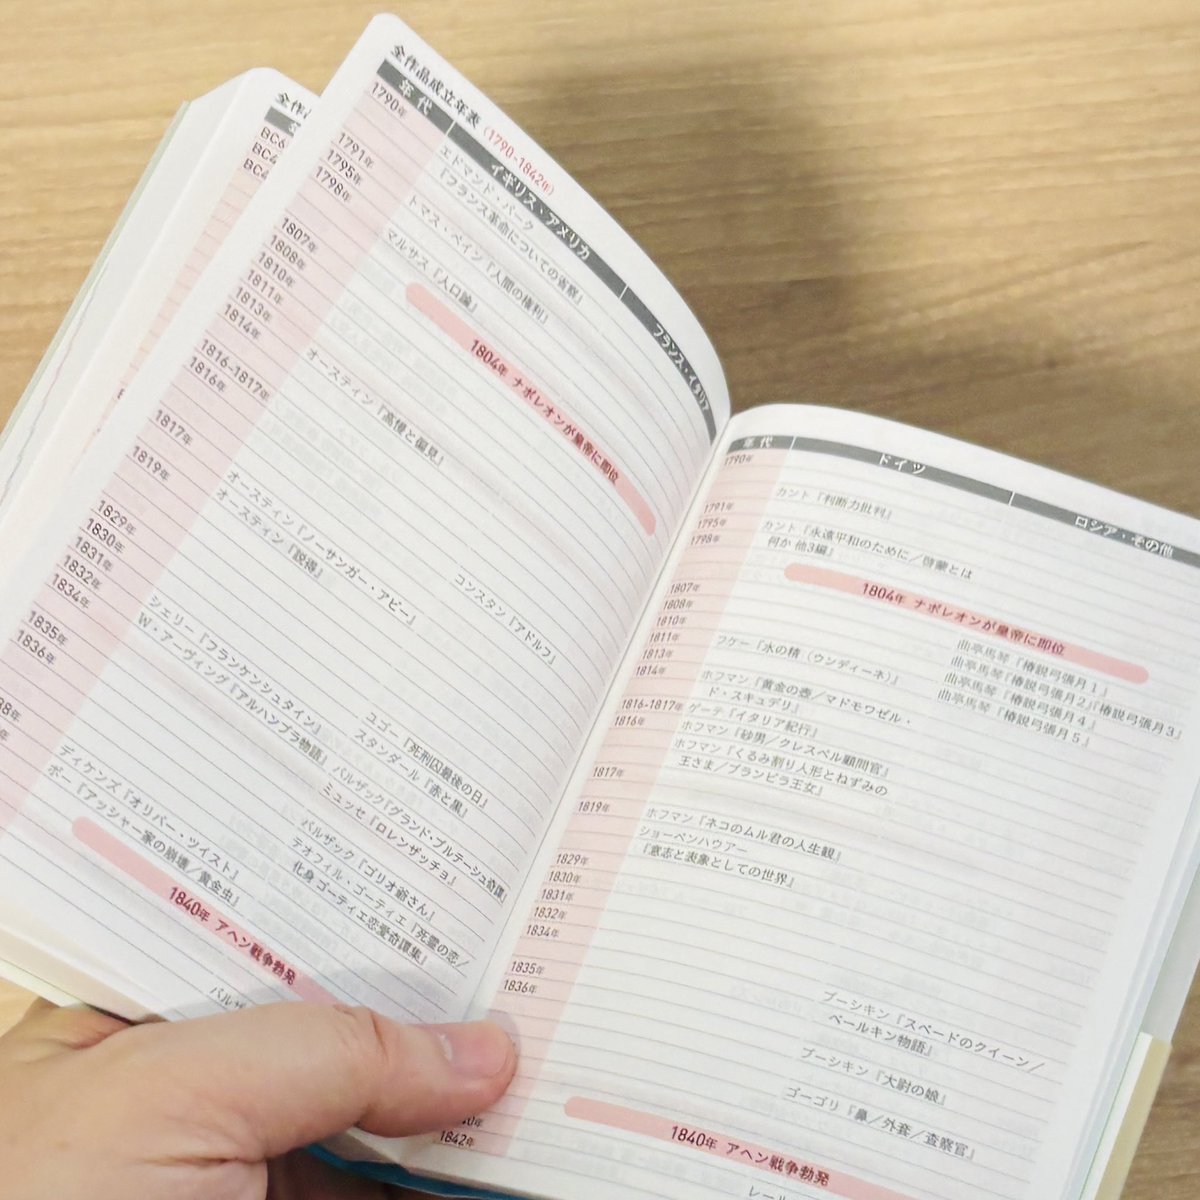 全作品成立年表(1790-1842年)
年代
イギリス・アメリカ
フランス・イタリア
1790年
1791年
1795年
1798年
1807年
1808年
1810年
1811年
1813年
1814年
1816-1817年
1816年
1817年
1819年
1829年
1830年
1831年
1832年
1834年
1835年
1836年
エドマンド・バーク
『フランス革命についての省察』
トマス・ペイン『人間の権利』
マルサス『人口論』
1804年 ナポレオンが皇帝に即位
オースティン『高慢と偏見』
コンスタン『アドルフ』
オースティン『ノーサンガー・アビー』
オースティン『説得』
シェリー『フランケンシュタイン』
ユゴー『死刑囚最後の日』
スタンダール『赤と黒』
W・アーヴィング『アルハンブラ物語』
バルザック『グランド・ブルテーシュ奇譚』
ミュッセ『ロレンザッチョ』
バルザック『ゴリオ爺さん』
テオフィル・ゴーティエ『死霊の恋/
化身 ゴーティエ恋愛奇譚集』
ディケンズ『オリバー・ツイスト』
ポー『アッシャー家の崩壊/黄金虫』
1840年 アヘン戦争勃発
全作
BC
BC4
BC4
年代
ドイツ
ロシア・その他
1790年
1791年
1795年
1798年
1807年
1808年
1810年
1811年
1813年
1814年
1816-1817年
1816年
1817年
1819年
1829年
1830年
1831年
1832年
1834年
1835年
1836年
1842年
カント『判断力批判』
カント『永遠平和のために/啓蒙とは
何か 他3編』
1804年 ナポレオンが皇帝に即位
曲亭馬琴『椿説弓張月1』
曲亭馬琴『椿説弓張月2』『椿説弓張月3』
曲亭馬琴『椿説弓張月4』
曲亭馬琴『椿説弓張月5』
フケー『水の精(ウンディーネ)』
ホフマン『黄金の壺/マドモワゼル・
ド・スキュデリ』
ゲーテ『イタリア紀行』
ホフマン『砂男/クレスペル顧問官』
ホフマン『くるみ割り人形とねずみの
王さま/ブランビラ王女』
ホフマン『ネコのムル君の人生観』
ショーペンハウアー
『意志と表象としての世界』
プーシキン『スペードのクイーン/
ベールキン物語』
プーシキン『大尉の娘』
ゴーゴリ『鼻/外套/査察官』
1840年 アヘン戦争勃発